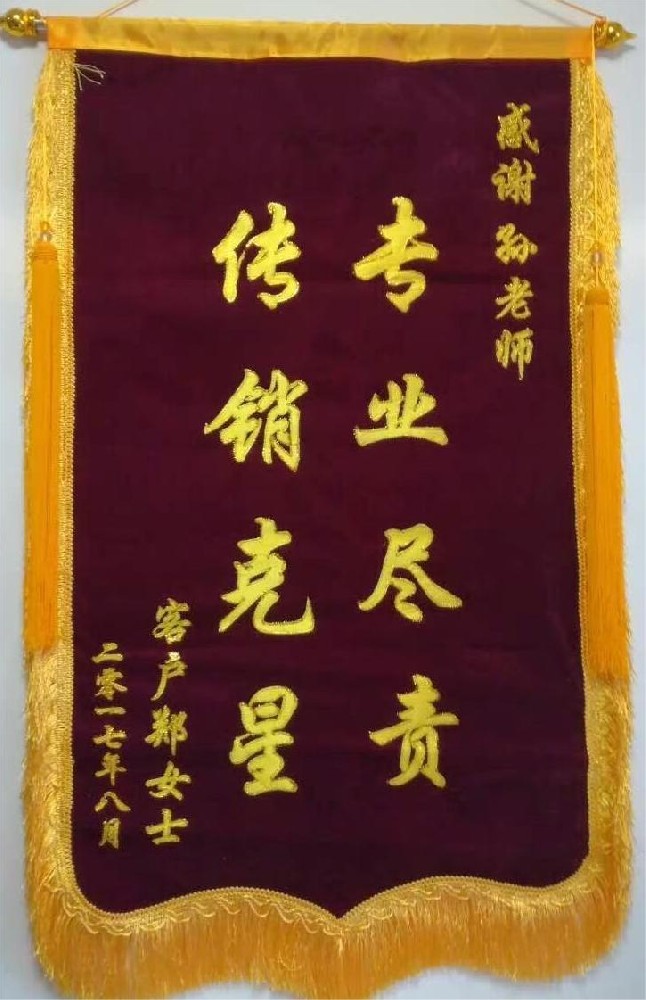 感谢孙老师
专业尽责
传销克星
客户郑女士
二零一七年八月